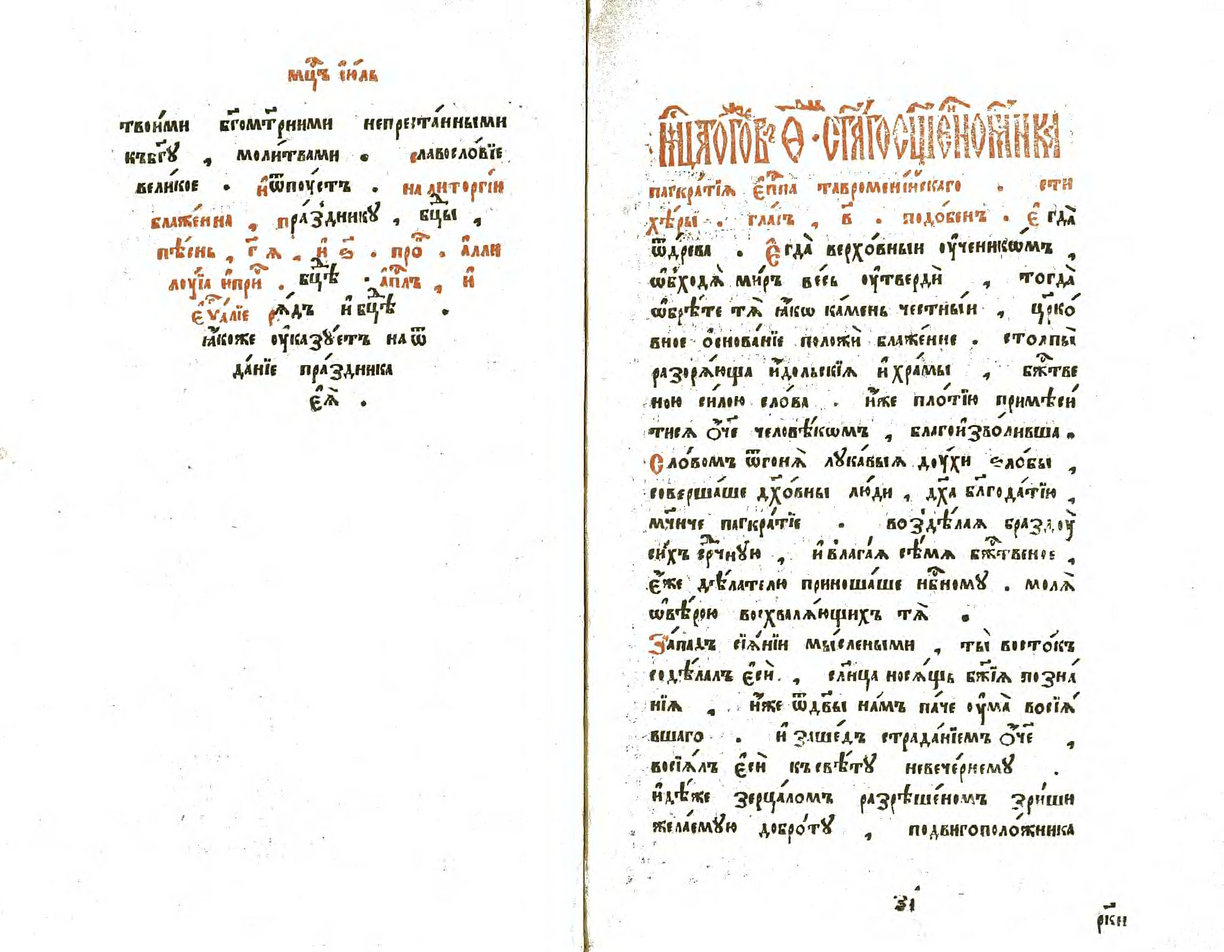 мц҃ъ їю́ль
твои́ми бг҃омт҃рними непреста́нными
къбг҃ꙋ , моли́твами . славосло́вїе
вели́кое . и҆ѿпꙋ́стъ . налитꙋргі́и
блаже́нна , пра́здникꙋ , бц҃ы ,
пѣ́снь , г҃ ꙗ , и҆ ѕ҃ . про . а҆лли
лꙋ́їа ипри . бц҃ѣ . а҆пл҃ъ , и҆
є҆ѵа́лїе рѧ́дъ и҆бц҃ѣ .
ꙗ҆́коже ᲂу҆ка́зꙋетъ наѿ
да́нїе пра́здника
є҆ѧ̀ .
мц҃а того́въ ѳ҃ . ст҃а́го сщ҃е́нном҃ника
пагкра́тїѧ є҆п҃па тавромені́йскаго . сти
хе́ры . гла́съ , в҃ . подо́бенъ . Є҆гда̀
ѿдре́ва . Є҆гда̀ верхо́вныи ᲂу҆ченикѡ́мъ ,
ѡ҆бходѧ̀ ми́ръ ве́сь ᲂу҆твердѝ , тогда̀
ѡ҆брѣ́те тѧ̀ ꙗ҆́кѡ ка́мень че́стныи , цр҃ко́
вное ѻ҆снова́нїе положѝ блаже́нне . столпы̀
разорѧ́юща и҆́дольскїѧ и҆хра́мы , бж҃тве
ною си́лою сло́ва . и҆́же пло́тїю примѣси́
тисѧ ѻ҆́ч҃е человѣ́кѡмъ , благои҆зво́ливша .
Сло́вомъ ѿгонѧ̀ лꙋка́выѧ дꙋ́хи ѕло́бы ,
соверша́ше дх҃о́вны лю́ди , дх҃а бл҃года́тїю ,
мч҃ниче пагкра́тїе . воздѣ́лаѧ бразды̀
си́хъ се҃рчнꙋю , и҆влага́ѧ сѣ́мѧ бж҃твеное ,
є҆́же дѣ́лателю приноша́ше нб҃номꙋ . молѧ̀
ѡ҆вѣ́рою восхвалѧ́ющихъ тѧ̀ .
За́падъ сїѧ́нїи мы́слеными , ты̀ восто́къ
содѣ́лалъ є҆сѝ . , сл҃нца носѧ́щь бж҃їѧ позна́
нїѧ , и҆́же ѿдв҃ы на́мъ па́че ᲂу҆ма̀ восїѧ́
вшаго . и҆ заше́дъ страда́нїемъ ѻ҆́ч҃е ,
восїѧ́лъ є҆сѝ къ свѣ́тꙋ невече́рнемꙋ .
и҆дѣ́же зерца́ломъ разрѣше́номъ зри́ши
жела́емꙋю добро́тꙋ , подвигополо́жника
з҃і
рк҃и